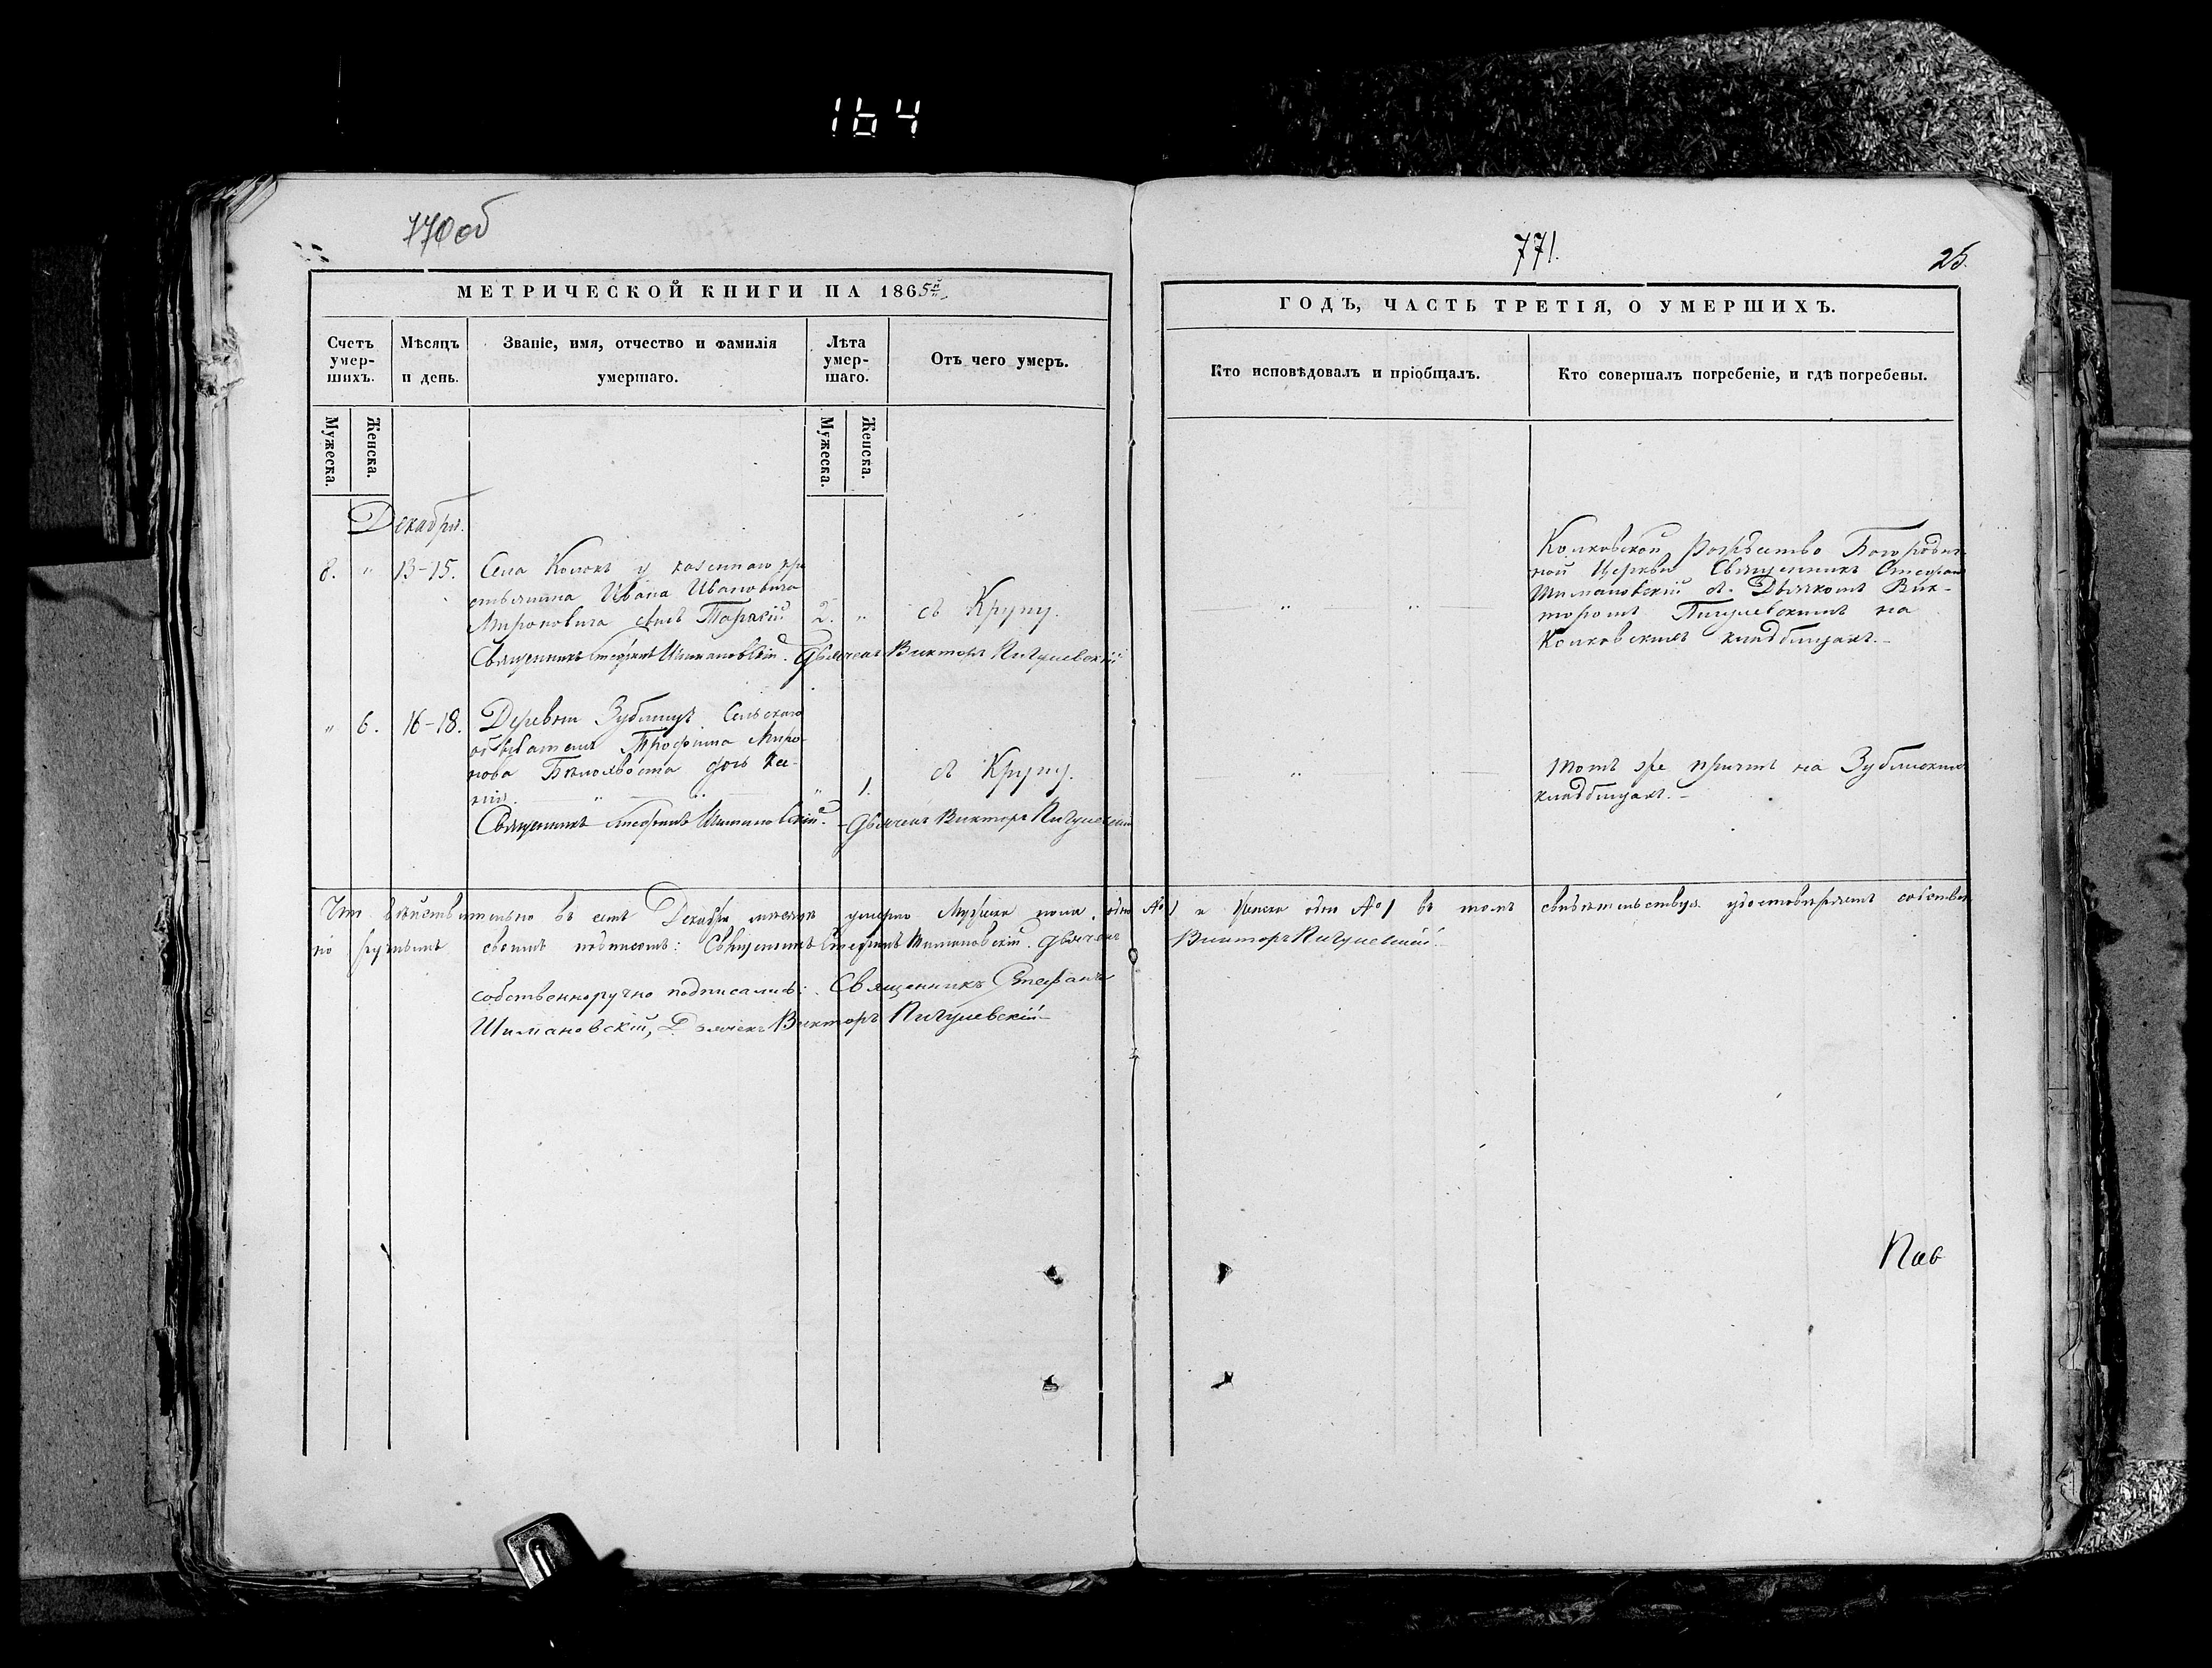 164
770об
771.
25.
МЕТРИЧЕСКОЙ КНИГИ НА 1865й
ГОДЪ, ЧАСТЬ ТРЕТІЯ, О УМЕРШИХЪ.
Счетъ умер-шихъ.
Мѣсяцъ и день.
Званіе, имя, отчество и фамилія умершаго.
Лѣта умер-шаго.
Отъ чего умеръ.
Кто исповѣдовалъ и пріобщалъ.
Кто совершалъ погребеніе, и гдѣ погребены.
Мужеска.
Женска.
Мужеска.
Женска.
Декабря.
8. " 13-15. Села Колокъ у казеннаго кре
стьянина Ивана Ивановича
Мироновича сынъ 2. " съ Крупу.
Священникъ Стефанъ Шимановскій. Дьячекъ Викторъ Пигулевскій
Колковской Рождество Богороднч-
ной Церкви Священникъ Стефан
Шимановскій съ Дьячкомъ Вик-
торомъ Пигулевскимъ на
Колковскомъ кладбищахъ.
" 6. 16-18. Деревни Зублищъ Сельскаго
обывателя Трофима Миро-
нова Бѣлохвоста дочь Ксе-
нія " 1. съ Крупу.
Священникъ Стефанъ Шимановскій. Дьячекъ Викторъ Пигулевскій
Тотъ же причтъ на Зублискихъ
кладбищахъ.
Что дѣйствительно въ семъ Декабрѣ мѣсяцѣ умерло Мужеска пола одно № 1 и Женска одно № 1 въ томъ свидѣтельствуя удостовѣряемъ собствен
но ручнымъ своимъ подписомъ: Священникъ Стефанъ Шимановскій. Дьячекъ Викторъ Пигулевскій.
собственноручно подписались: Священникъ Стефанъ
Шимановскій, Дьячекъ Викторъ Пигулевскій